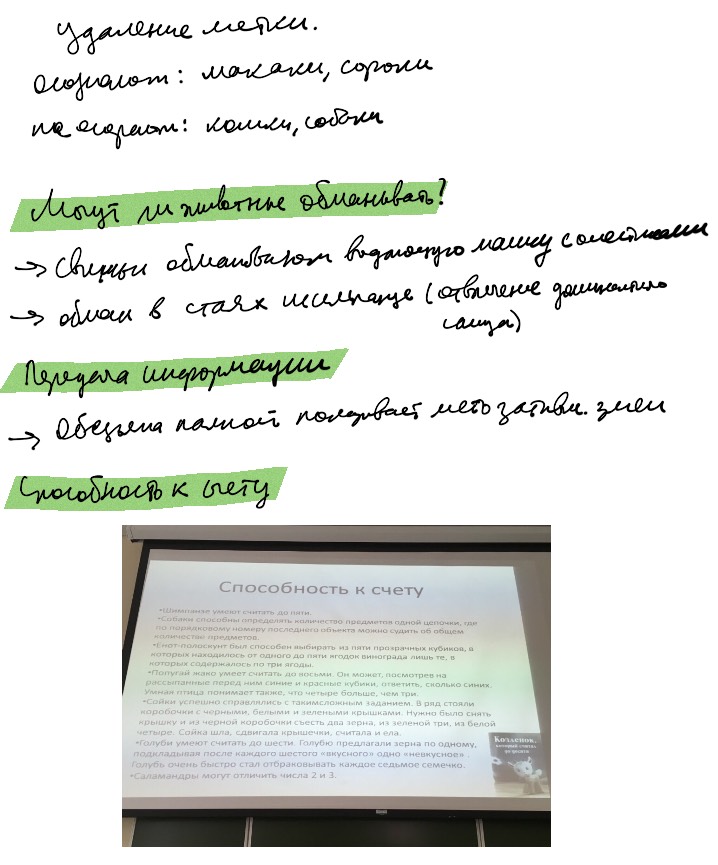 Удаление метки.
осознают: макаки, сороки
не осознают: кошки, собаки
Могут ли животные обманывать?
→ Свиньи обманывают
→ обман в стаях шимпанзе (отвлечение
самца)
Передача информации
→ Обезьяна палкой показывает место
Способность к счету
Способность к счету
•Шимпанзе умеют считать до пяти.
•Собаки способны определять количество предметов одной цепочки, где
по порядковому номеру последнего объекта можно судить об общем
количестве предметов.
•Енот-полоскун был способен выбирать из пяти прозрачных кубиков, в
которых находилось от одного до пяти ягодок винограда лишь те, в
которых содержалось по три ягоды.
•Попугай жако умеет считать до восьми. Он может, посмотрев на
рассыпанные перед ним синие и красные кубики, ответить, сколько синих.
Умная птица понимает также, что четыре больше, чем три.
•Сойки успешно справлялись с такимсложным заданием. В ряд стояли
коробочки с черными, белыми и зелеными крышками. Нужно было снять
крышку и из черной коробочки съесть два зерна, из зеленой три, из белой
четыре. Сойка шла, сдвигала крышечки, считала и ела.
•Голуби умеют считать до шести. Голубю предлагали зерна по одному,
подкладывая после каждого шестого «вкусного» одно «невкусное» .
Голубь очень быстро стал отбраковывать каждое седьмое семечко.
•Саламандры могут отличить числа 2 и 3.
Козленок,
который считал
до десяти